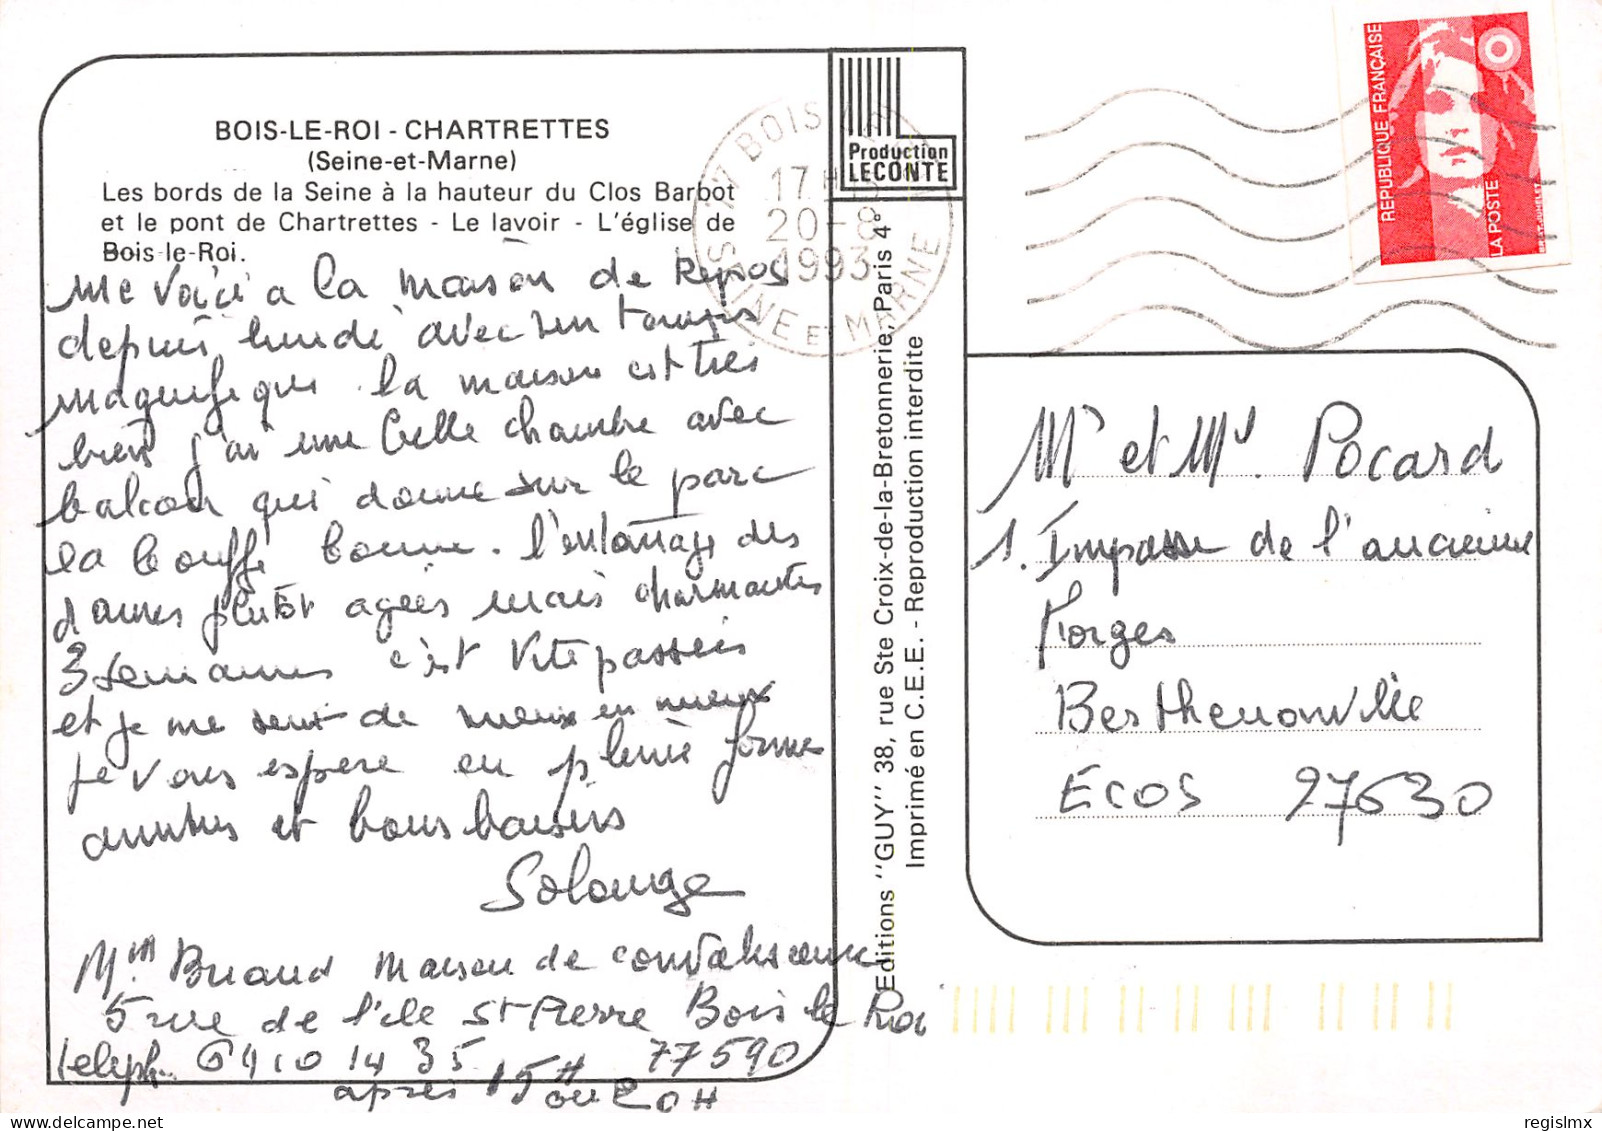 BOIS-LE-ROI - CHARTRETTES
(Seine-et-Marne)
Les bords de la Seine à la hauteur du Clos Barbot
et le pont de Chartrettes - Le lavoir - L'église de
Bois-le-Roi.
me voici a la maison de Repos
depuis lundi avec un temps
magnifique la maison est très
bien j'ai une belle chambre avec
balcon qui donne sur le parc
la bouffe bonne. l'entourage des
dames plutôt agées mais charmantes
3 semaines c'est vite passées
et je me sens de mieux en mieux
je vous espere en pleine forme
amitiés et bons baisers
Solange
Mm Briand maison de convalescence
5 rue de l'ile St Pierre Bois le Roi
teleph. 64 10 14 35 77590
après 15H ou 20H
Production
LECONTE
17 BOIS LE ROI
17 H
20-8
1993
SEINE ET MARNE
Editions "GUY" 38, rue Ste Croix-de-la-Bretonnerie, Paris 4e
Imprimé en C.E.E. - Reproduction interdite
REPUBLIQUE FRANÇAISE
LA POSTE
Mr et Me. Pocard
1. Impasse de l'ancienne
Forges
Berthenonville
ECOS 27630
regislmx